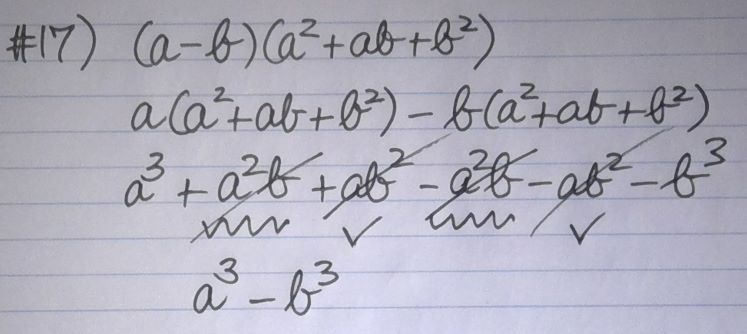 #17) (a-b)(a²+ab+b²)
a(a²+ab+b²)-b(a²+ab+b²)
a³+a²b+ab²-a²b-ab²-b³
a³-b³